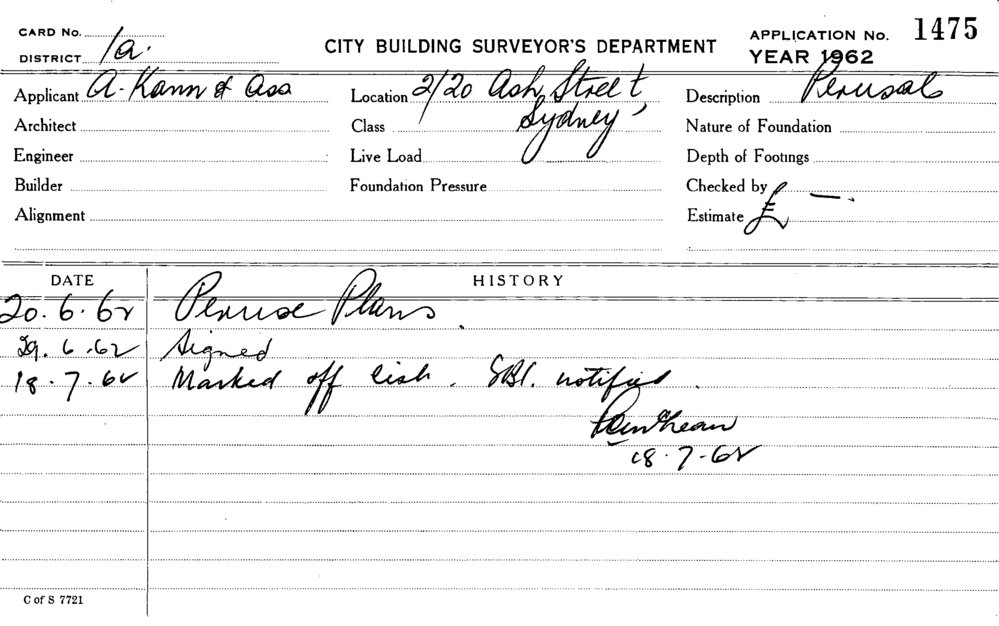 CARD No.
DISTRICT 1a.
CITY BUILDING SURVEYOR'S DEPARTMENT
APPLICATION No. 1475
YEAR 1962
Applicant A. Kann & Ass
Location 2/20 Ash Street
Sydney
Description Perusal
Architect
Class
Nature of Foundation
Engineer
Live Load
Depth of Footings
Builder
Foundation Pressure
Checked by
Alignment
Estimate £ —.
DATE
HISTORY
20.6.62 Peruse Plans.
29.6.62 Signed
18.7.62 Marked off list. notified.
18.7.62
C of S 7721